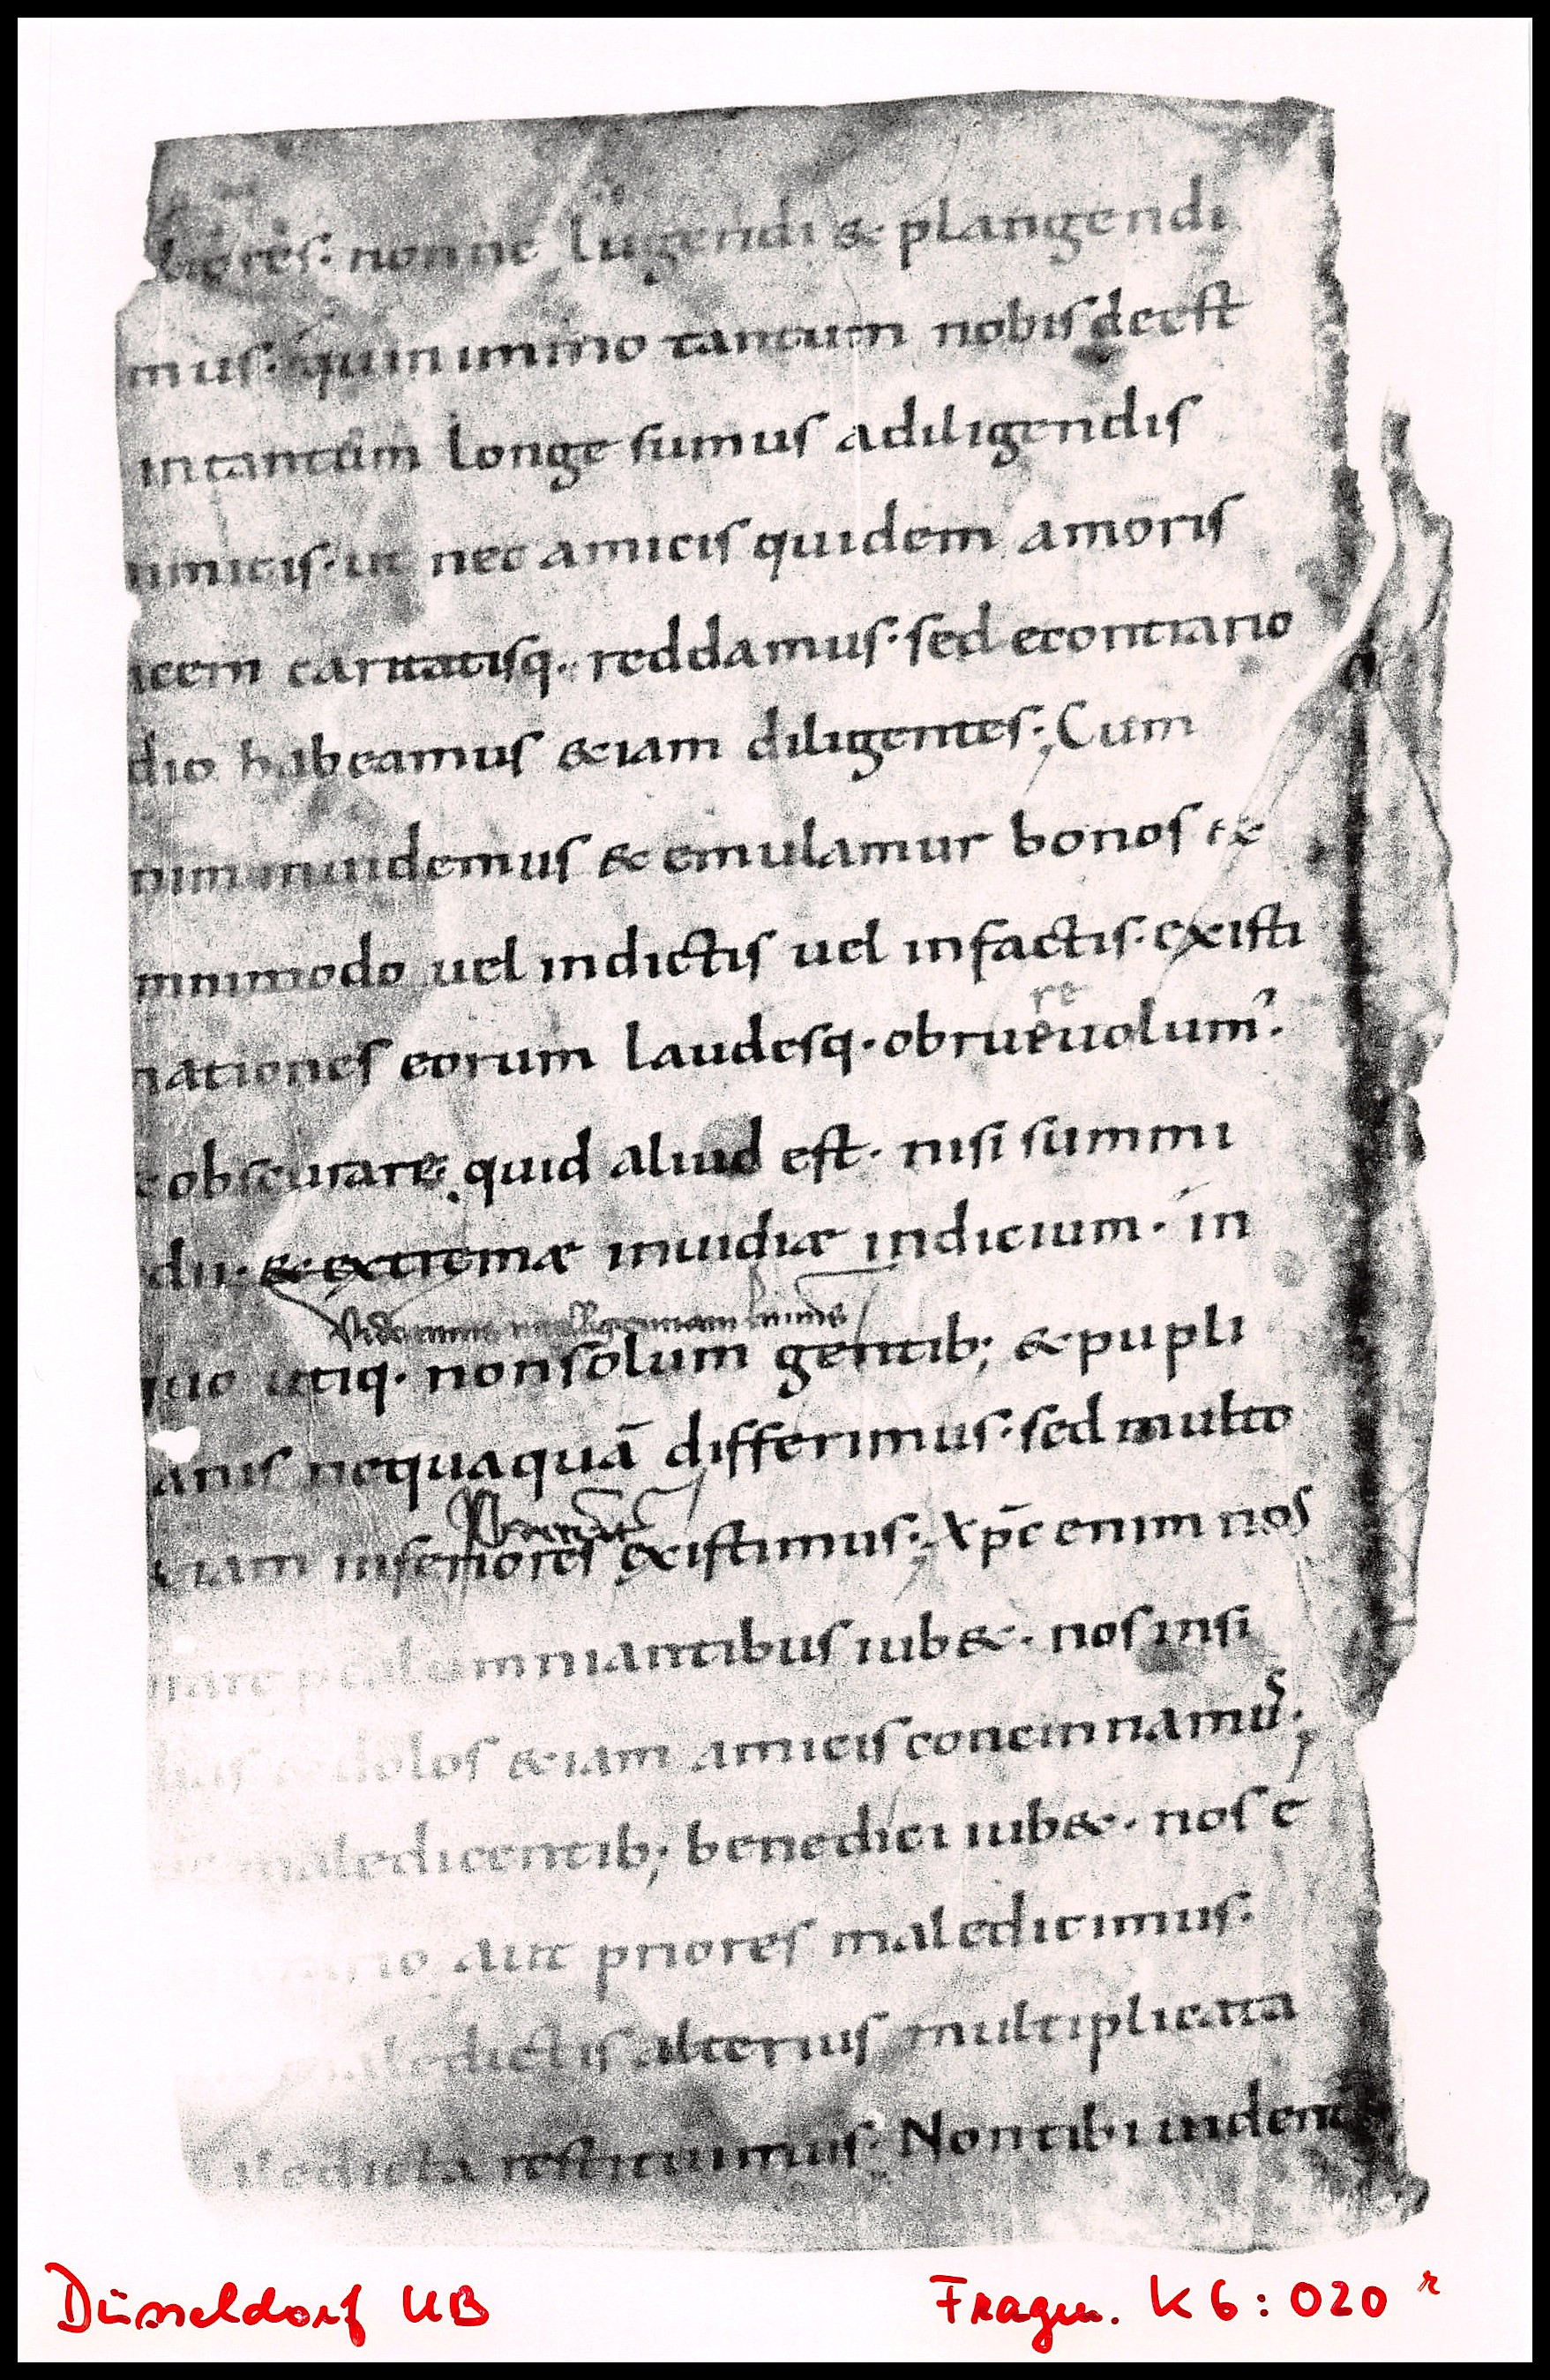 heres. nonne lugendi & plangendi
mus. quin immo tantum nobis deest
intantum longe sumus adiligendis
nimicis. ut nec amicis quidem amoris
icem caritatisq. reddamus. sed econtrario
dio habeamus &iam diligentes; Cum
nim inuidemus & emulamur bonos &
mnimodo uel indictis uel infactis. existi
nationes eorum laudesq. obruere uolum?
obscurare quid aliud est. nisi summi
dii. & extremæ inuidiæ indicium. in
quo utiq. nonsolum gentib; & pupli
anis nequaquā differimus. sed multo
&iam inferiores existimus; xp̄c enim nos
calumniantibus iub&. nos insi
dias & dolos &iam amicis concinnamus;
maledicentib; benedici iub&. nos e
rario aut priores maledicimus.
maledictis alterius multiplicata
maledicta restituimus. Non tibi uident
Düsseldorf UB
Fragm. K6:020 r